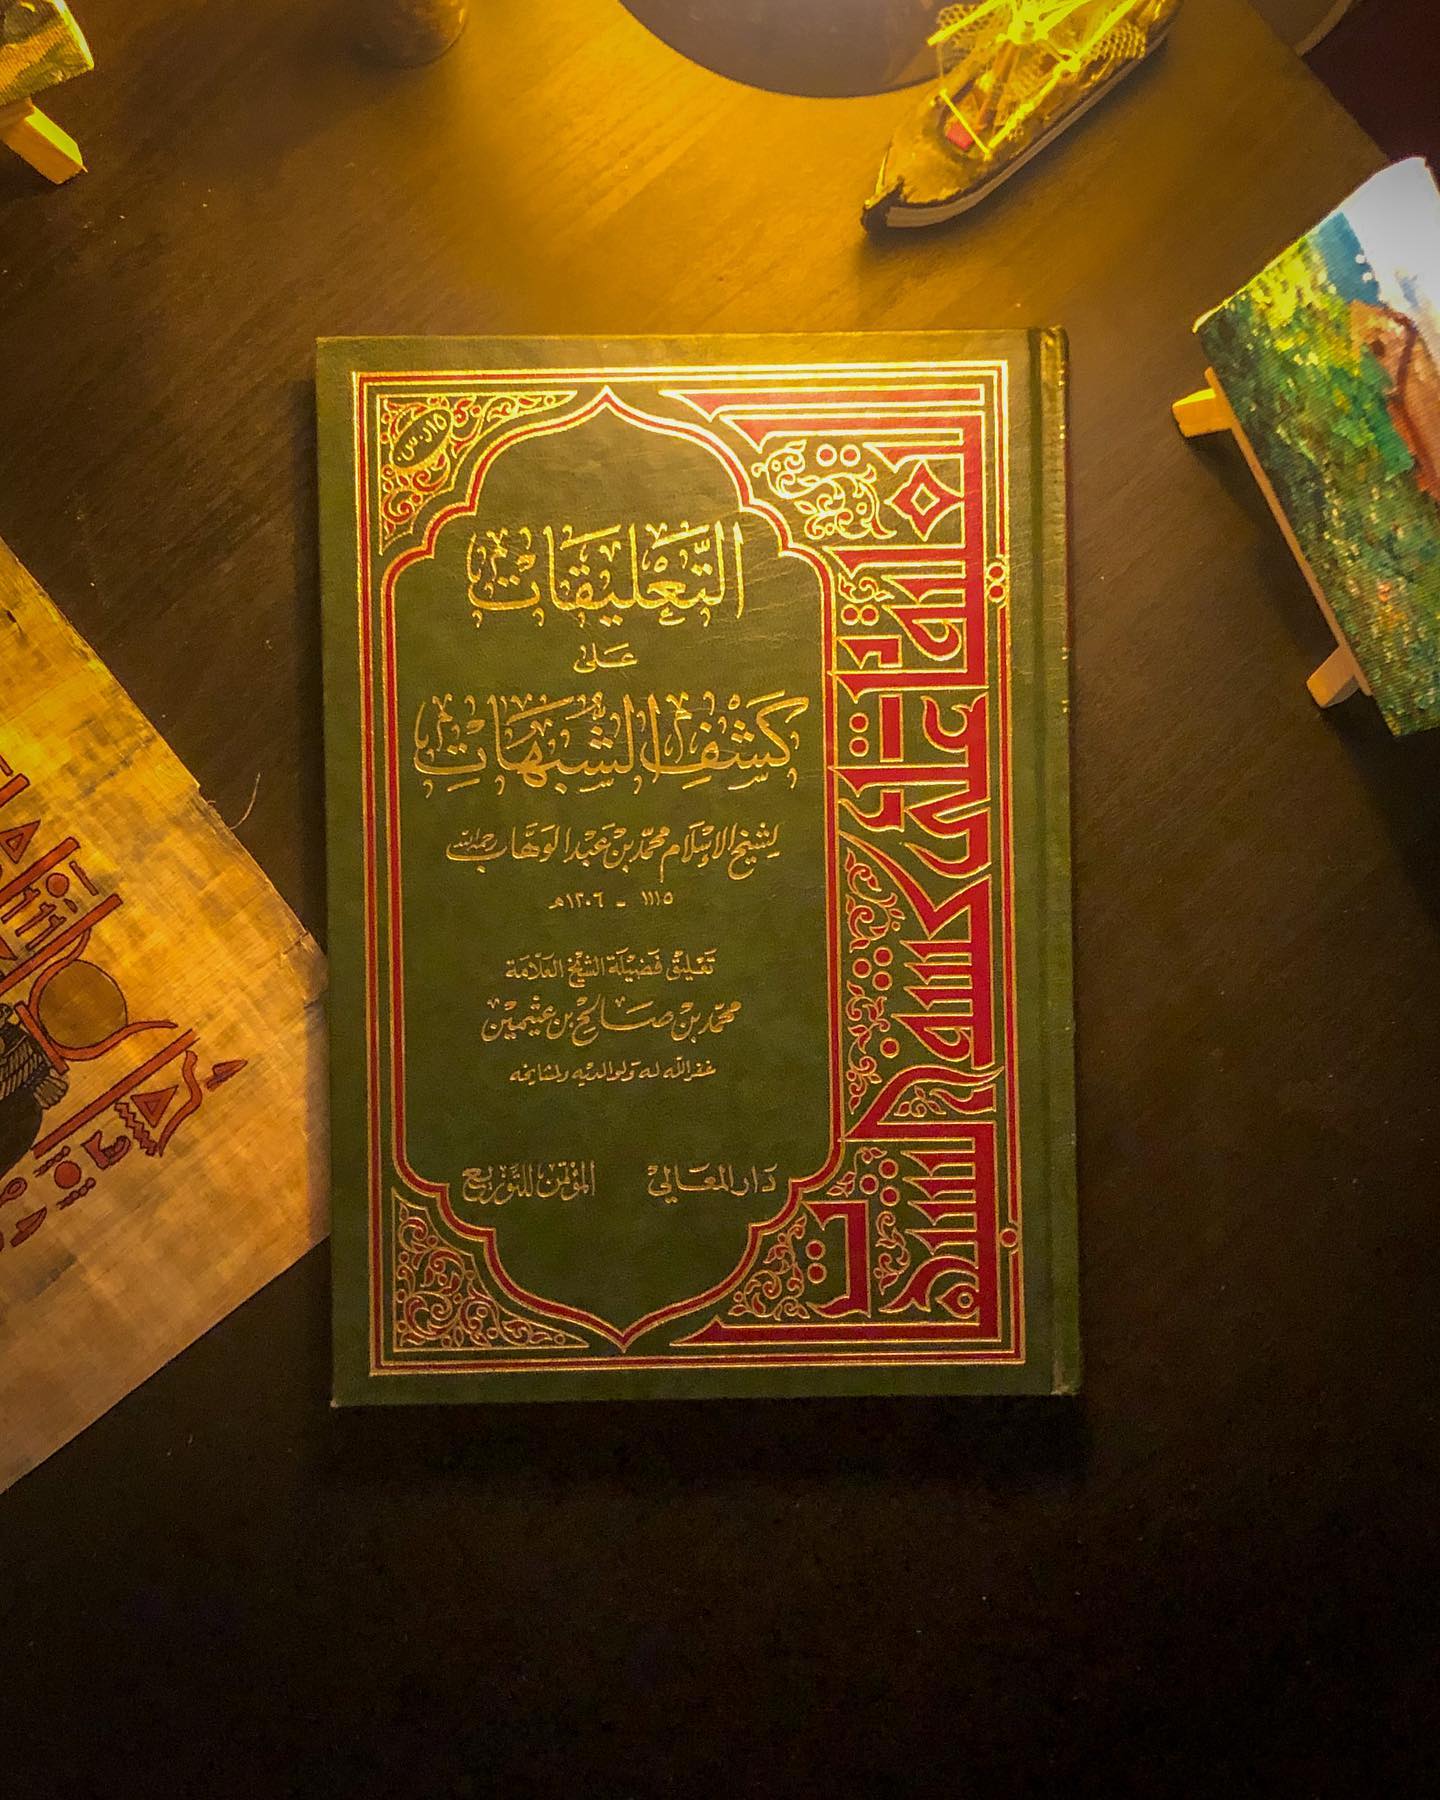 ١٥ر.س
التَّعْليقَاتْ
عَلىٰ
كَشْفِ الشُّبُهَاتِ
لِشَيْخ الإِسْلَام محمّد بْن عَبْد الوَهَّاب رحمه الله
١١١٥ - ١٢٠٦هـ
تَعْليق فَضيْلَة الشيْخ العَلّامَة
محمّد بْن صَالح بْن عثيمين
غفر الله له ولوالديه ولمشايخه
دَار المعَالي المؤتمن للتّوزيع
التعليقات على كشف الشبهات